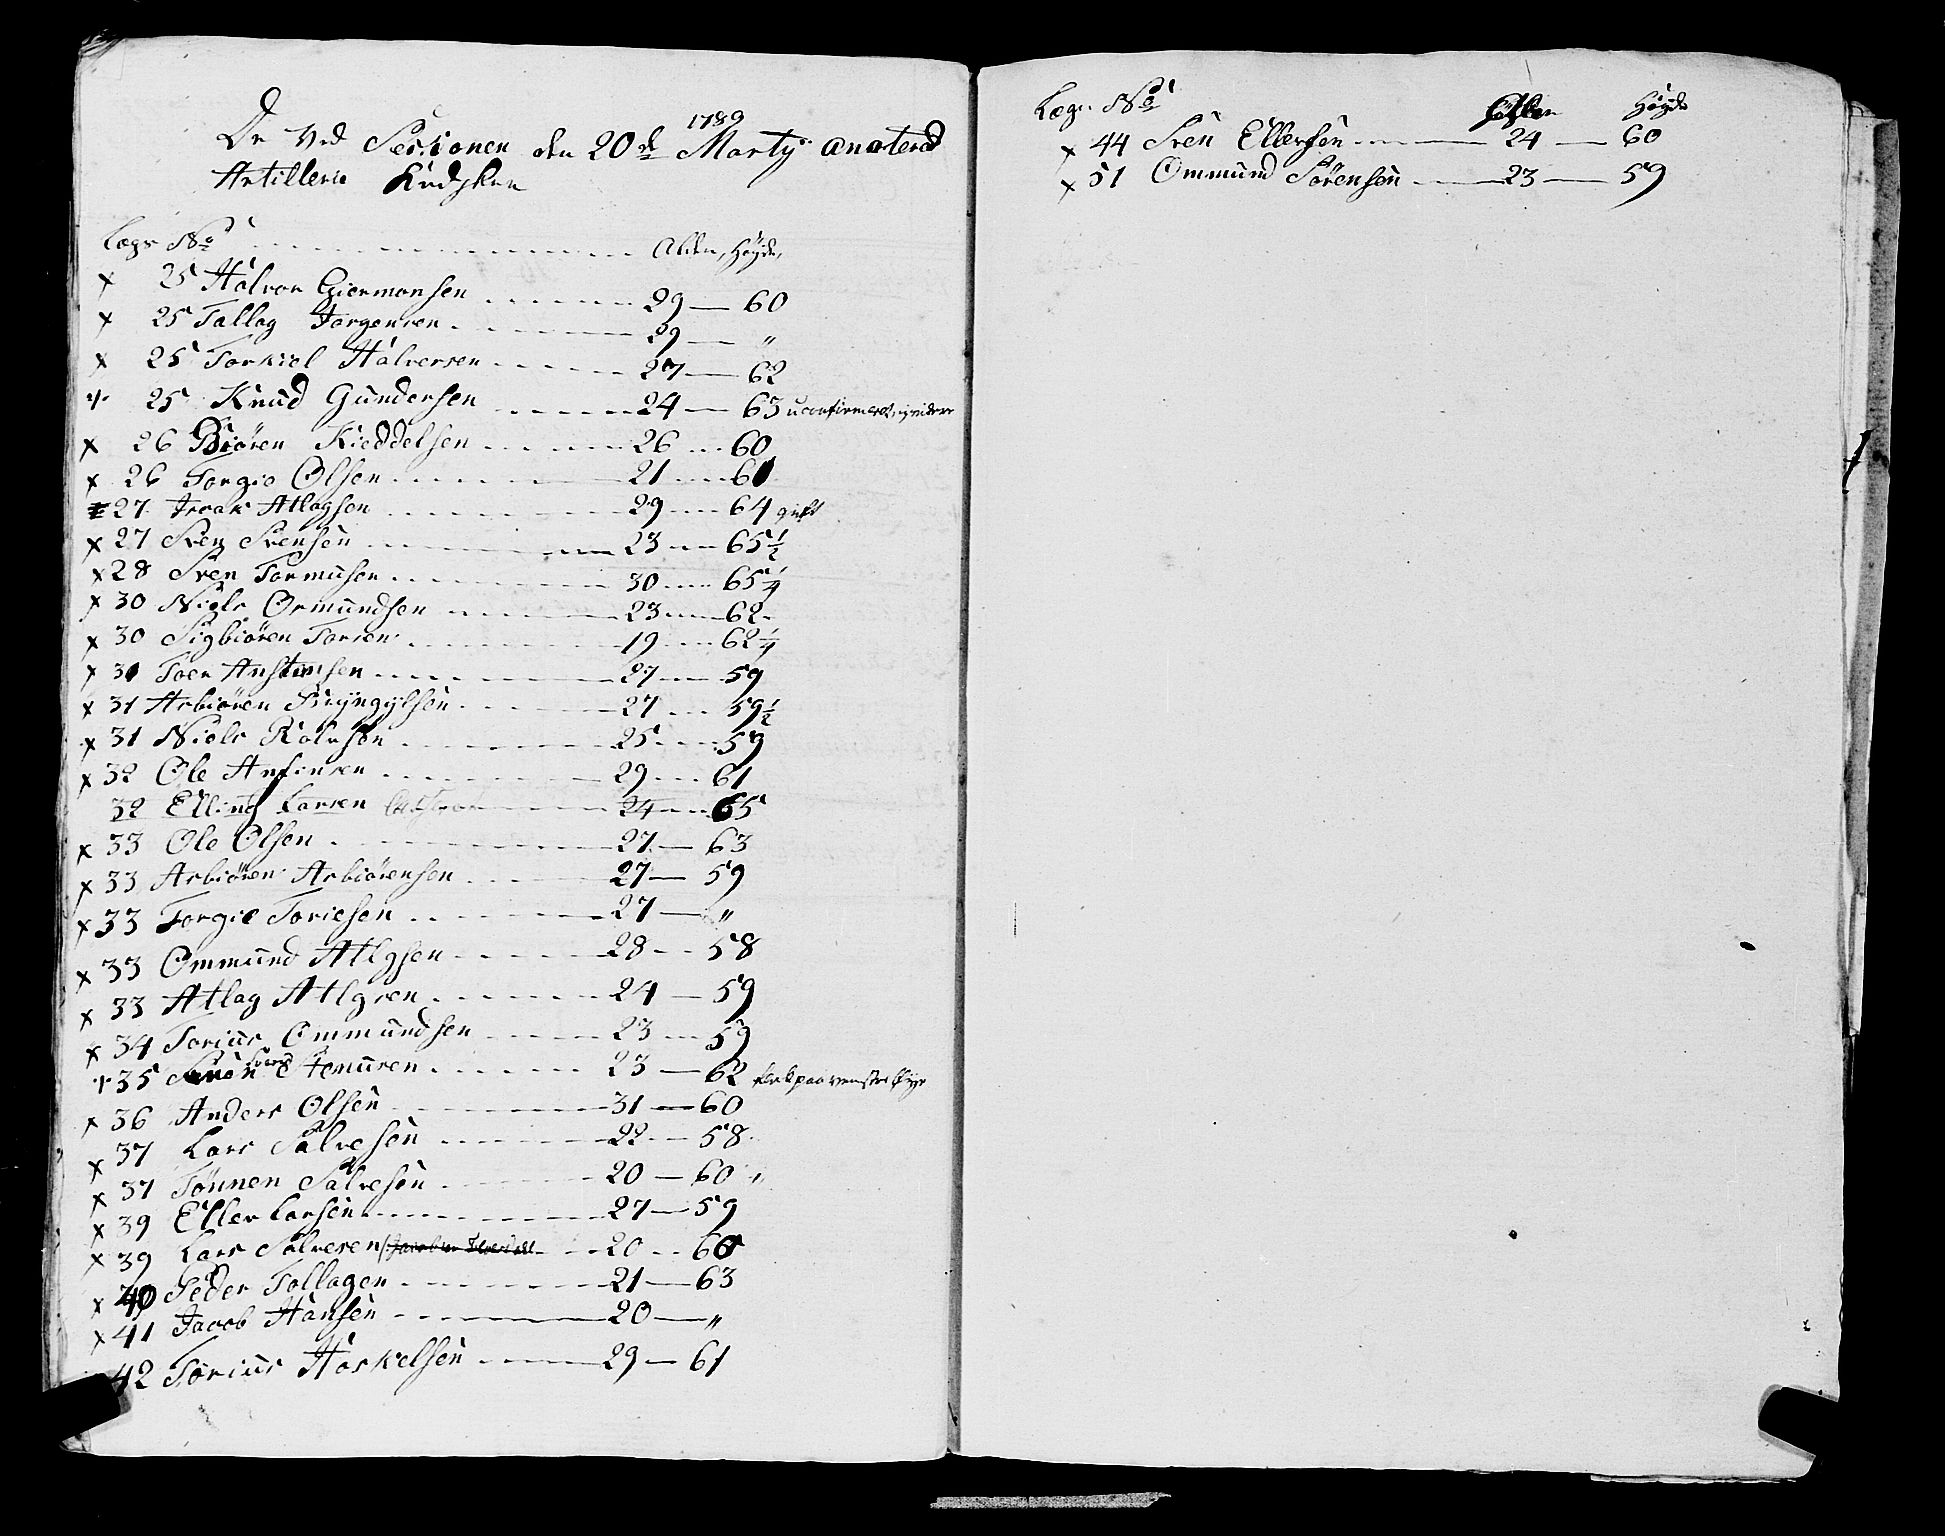 1789
De Ved Sessionen den 20de Marty anoterd
Artillerie Kudske
Lægs No Alder, Høyde,
x 25 Halvor Giermonsen 29 — 60
x 25 Tallag Jorgensen 29 — "
x 25 Torkiel Halversen 27 — 62
25 Knud Gundersen 24 — 63 uconfirmeret
x 26 Biören Kieddelsen 26 60
x 26 Torgie Olsen 21 61
27 Atlagsen 29 64 gift
x 27 Sven Svensen 23 65 1/2
x 28 Sven Tormusen 30 65 1/4
x 30 Niels Omundsen 23 62
x 30 Sigbiören Torsen 19 62 1/4
x 31 Toer Anstensen 27 59
x 31 Asbiören 27 59 1/2
x 31 Niels Rolvsen 25 59
x 32 Ole Anfinsen 29 61
32 Elling Larsen 24 65
x 33 Ole Olsen 27 63
x 33 Asbiören Asbiörensen 27 — 59
x 33 Torgie Toriesen 27 — "
x 33 Ommund Atlgsen 28 58
x 33 Atlag Atlgsen 24 — 59
x 34 Torius Ommundsen 23 59
x 35 Svend Aamunsen 23 — 62 flek paa venstre Øye
x 36 Anders Olsen 31 — 60
x 37 Lars Salvesen 22 58
x 37 Tönnen Salvesen 20 — 60 "
x 39 Eller Larsen 27 — 59
x 39 Lars Salvesen 20 60
x 40 Peder Tollagen 21 — 63
x 41 Jacob Hansen 20 — "
42 Torius Haskelsen 29 — 61
Lægs No Alder Høyde
x 44 Sven Ellersen 24 — 60
x 51 Ommund Sörensen 23 — 59